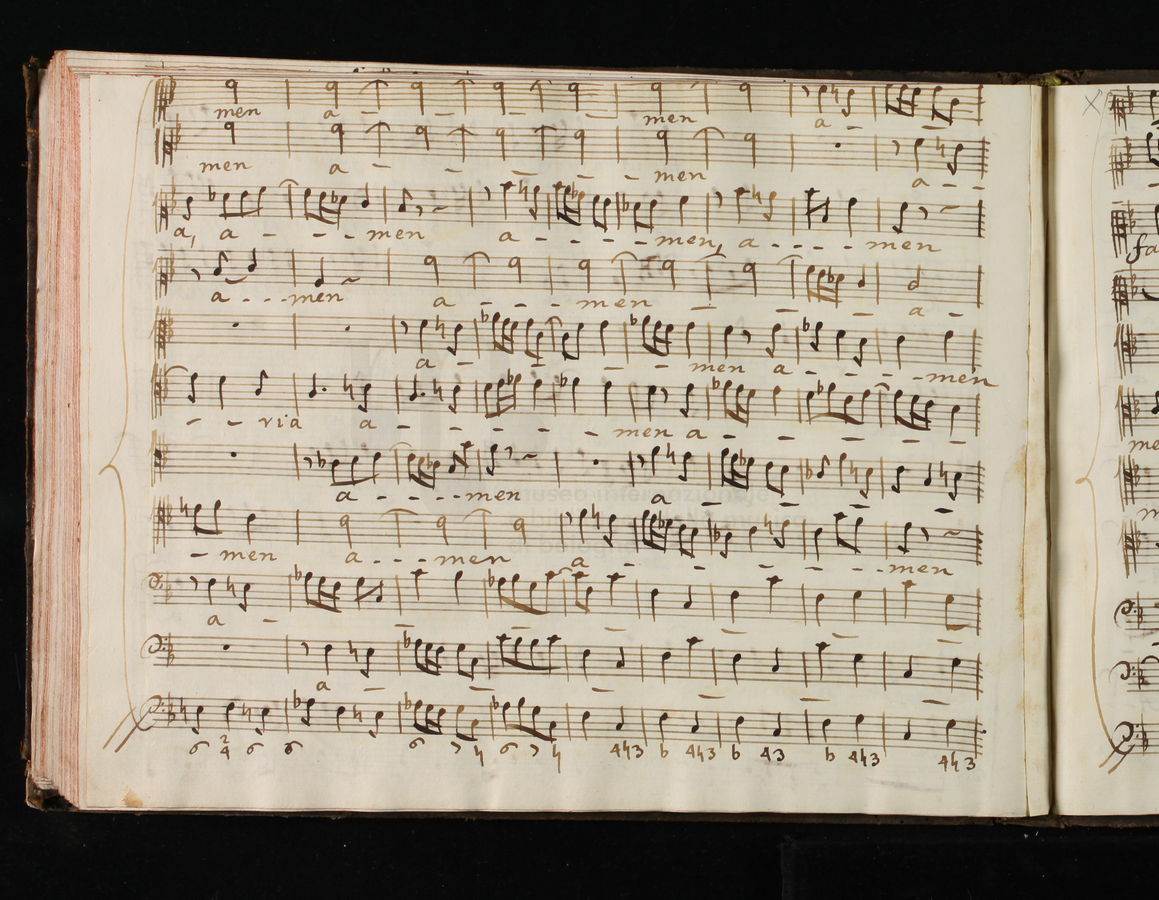 men a - - - - men a - -
men a - - - - - men a - -
a, a - - - men a - - - - men, a - - - - men
a - - - men a - - - men - a -
a - - - - men a - - - - men
- - ria a - - - - - men a - - - -
a - - - - men a - - - -
- men a - - - - men a - - - - - men
a - - - - -
a - - - - -
6 2 6 6 6 7 4 6 7 4 4 4 3 b 4 4 3 b 4 3 b 4 4 3 4 4 3
4
museo internazionale
X